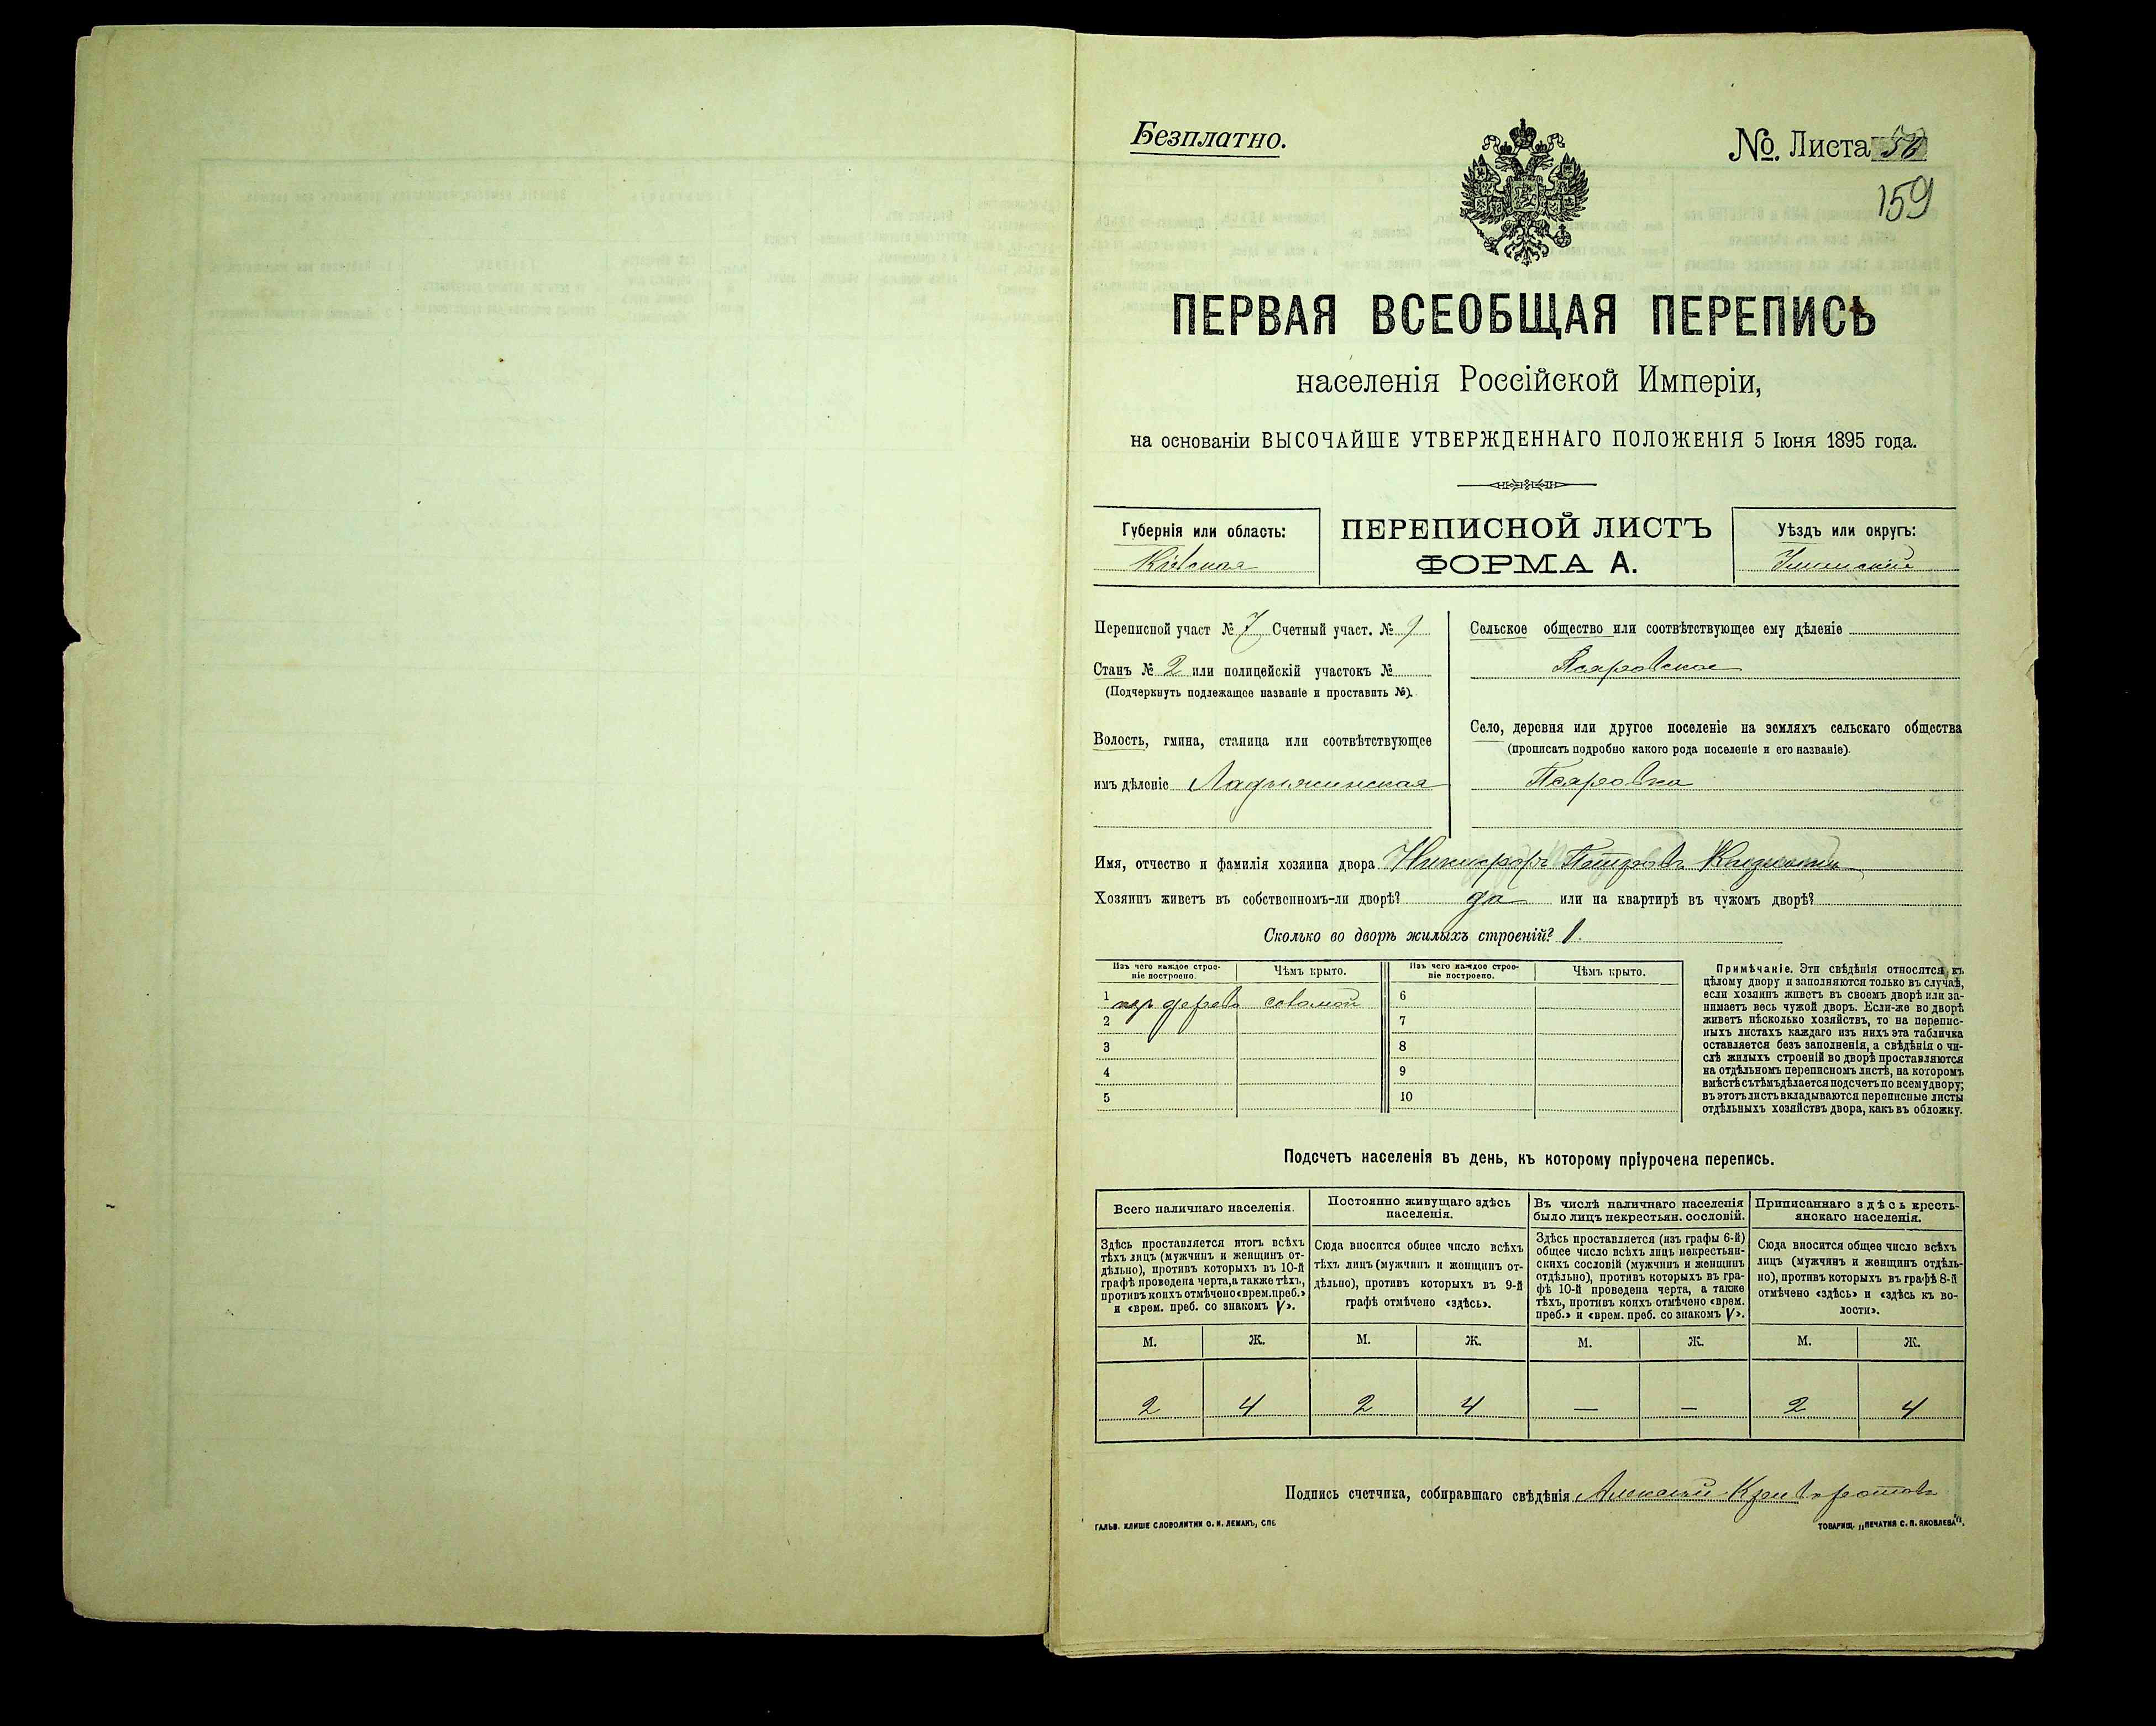 Безплатно.
№. Листа 50
159
ПЕРВАЯ ВСЕОБЩАЯ ПЕРЕПИСЬ
населенія Россійской Имперіи,
на основаніи ВЫСОЧАЙШЕ УТВЕРЖДЕННАГО ПОЛОЖЕНІЯ 5 Іюня 1895 года.
Губернія или область:
Кіевская
ПЕРЕПИСНОЙ ЛИСТЪ
ФОРМА А.
Уѣздъ или округъ:
Уманскій
Переписной участ № 7 Счетный участ. № 9
Станъ № 2 или полицейскій участокъ №
(Подчеркнуть подлежащее названіе и проставить №).
Волость, гмина, станица или соотвѣтствующее
имъ дѣленіе Ладыжинская
Сельское общество или соотвѣтствующее ему дѣленіе
Псяровское
Село, деревня или другое поселеніе на земляхъ сельскаго общества
(прописать подробно какого рода поселеніе и его названіе).
Псяровка
Имя, отчество и фамилія хозяина двора Никифоръ Петровъ
Хозяинъ живетъ въ собственномъ-ли дворѣ? да или на квартирѣ въ чужомъ дворѣ?
Сколько во дворѣ жилыхъ строеній? 1.
Изъ чего каждое строе-
ніе построено.
Чѣмъ крыто.
Изъ чего каждое строе-
ніе построено.
Чѣмъ крыто.
1 дерев соломой 6
2 7
3 8
4 9
5 10
Примѣчаніе. Эти свѣдѣнія относятся къ
цѣлому двору и заполняются только въ случаѣ,
если хозяинъ живетъ въ своемъ дворѣ или за-
нимаетъ весь чужой дворъ. Если-же во дворѣ
живетъ нѣсколько хозяйствъ, то на перепис-
ныхъ листахъ каждаго изъ нихъ эта табличка
оставляется безъ заполненія, а свѣдѣнія о чи-
слѣ жилыхъ строеній во дворѣ проставляются
на отдѣльномъ переписномъ листѣ, на которомъ
вмѣстѣ съ тѣмъ дѣлается подсчетъ по всему двору;
въ этотъ листъ вкладываются переписные листы
отдѣльныхъ хозяйствъ двора, какъ въ обложку.
Подсчетъ населенія въ день, къ которому пріурочена перепись.
Всего наличнаго населенія.
Здѣсь проставляется итогъ всѣхъ
тѣхъ лицъ (мужчинъ и женщинъ от-
дѣльно), противъ которыхъ въ 10-й
графѣ проведена черта, а также тѣхъ,
противъ коихъ отмѣчено «врем. преб.»
и «врем. преб. со знакомъ V».
Постоянно живущаго здѣсь
населенія.
Сюда вносится общее число всѣхъ
тѣхъ лицъ (мужчинъ и женщинъ от-
дѣльно), противъ которыхъ въ 9-й
графѣ отмѣчено «здѣсь».
Въ числѣ наличнаго населенія
было лицъ некрестьян. сословій.
Здѣсь проставляется (изъ графы 6-й)
общее число всѣхъ лицъ некрестьян-
скихъ сословій (мужчинъ и женщинъ
отдѣльно), противъ которыхъ въ гра-
фѣ 10-й проведена черта, а также
тѣхъ, противъ коихъ отмѣчено «врем.
преб.» и «врем. преб. со знакомъ V».
Приписаннаго здѣсь кресть-
янскаго населенія.
Сюда вносится общее число всѣхъ
лицъ (мужчинъ и женщинъ отдѣль-
но), противъ которыхъ въ графѣ 8-й
отмѣчено «здѣсь» и «здѣсь къ во-
лости».
М. Ж. М. Ж. М. Ж. М. Ж.
2 4 2 4 — — 2 4
Подпись счетчика, собиравшаго свѣдѣнія Алексѣй Криворотовъ
ГАЛЬВ. КЛИШЕ СЛОВОЛИТНИ О. И. ЛЕМАНЪ, СПБ.
ТОВАРИЩ. „ПЕЧАТНЯ С. П. ЯКОВЛЕВА“.